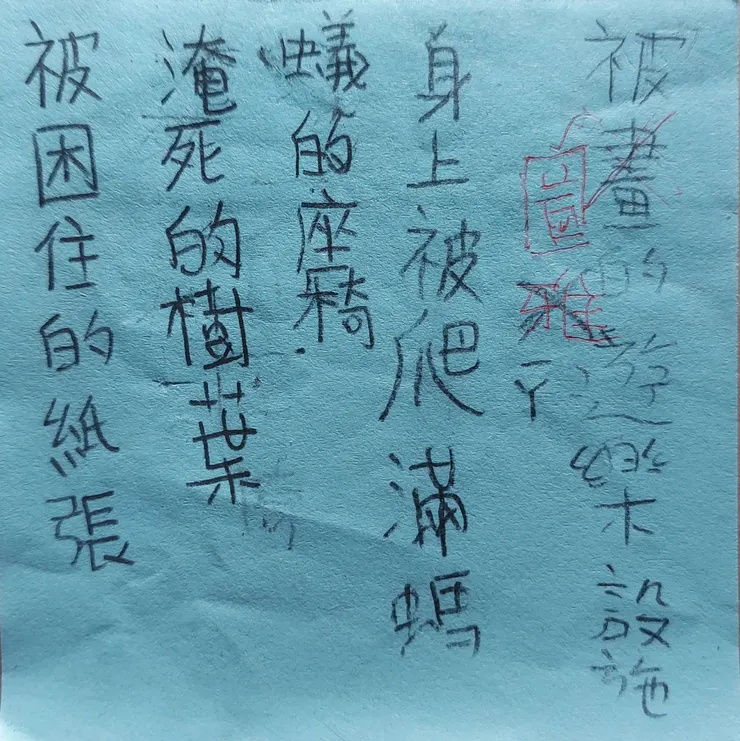 被畫的遊樂設施
圖雅ㄧㄚ
身上被爬滿螞
蟻的座椅
淹死的樹葉
被困住的紙張